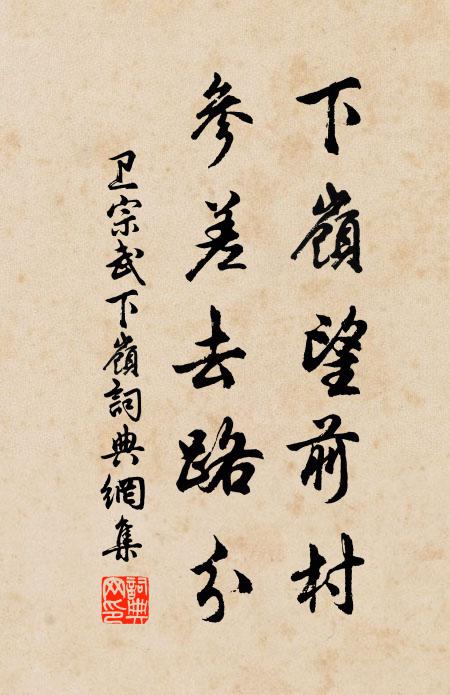 下嶺望前村
參差去路分
卫宗武下嶺詞典網集
詞典網印